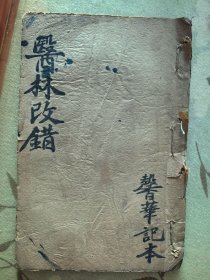 醫林改錯
馨華記本